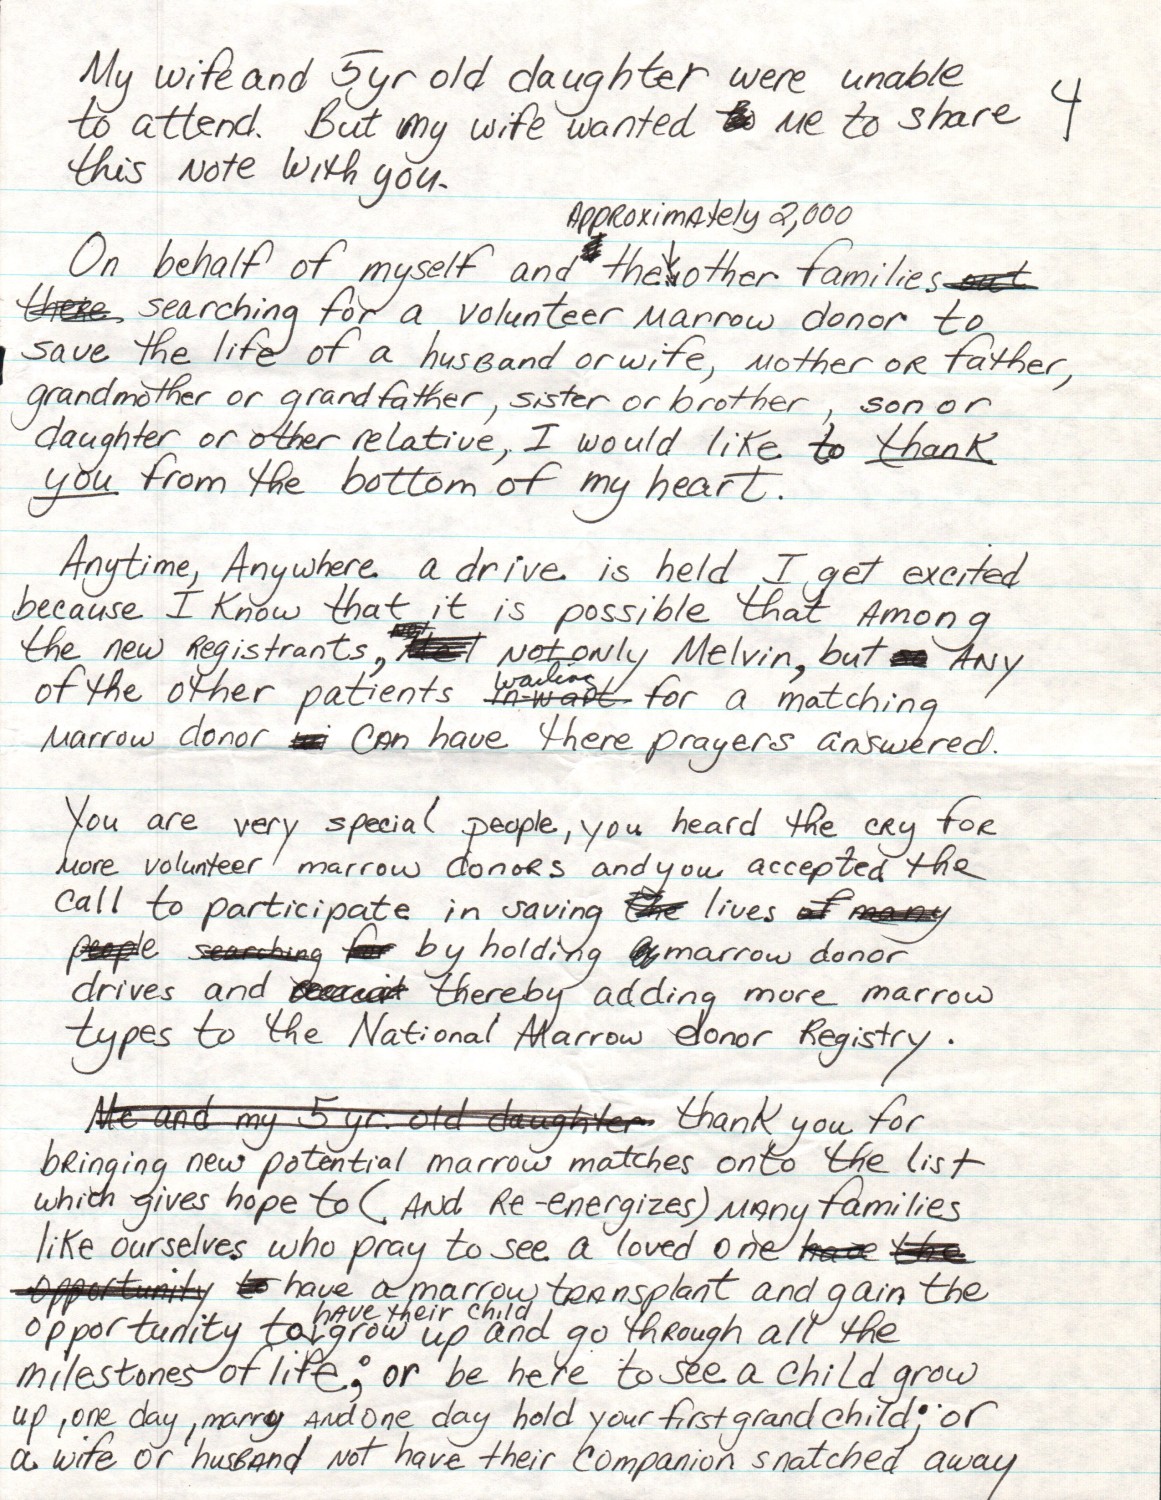 My wife and 5yr old daughter were unable
4
to attend. But my wife wanted to me to share
this note with you.
Approximately 2,000
On behalf of myself and the other families out
there, searching for a volunteer marrow donor to
save the life of a husband or wife, mother or father,
grandmother or grandfather, sister or brother, son or
daughter or other relative, I would like to thank
you from the bottom of my heart.
Anytime, Anywhere a drive is held I get excited
because I know that it is possible that among
not
the new registrants, not only Melvin, but any
waiting
of the other patients in-wait for a matching
marrow donor can have there prayers answered.
You are very special people, you heard the cry for
more volunteer marrow donors and you accepted the
call to participate in saving the lives of many
people searching for by holding marrow donor
drives and recruit thereby adding more marrow
types to the National Marrow donor Registry.
Me and my 5 yr. old daughter thank you for
bringing new potential marrow matches onto the list
which gives hope to (and re-energizes) many families
like ourselves who pray to see a loved one have the
opportunity to have a marrow transplant and gain the
have their child
opportunity to grow up and go through all the
milestones of life; or be here to see a child grow
up, one day, marry and one day hold your first grandchild; or
a wife or husband not have their companion snatched away